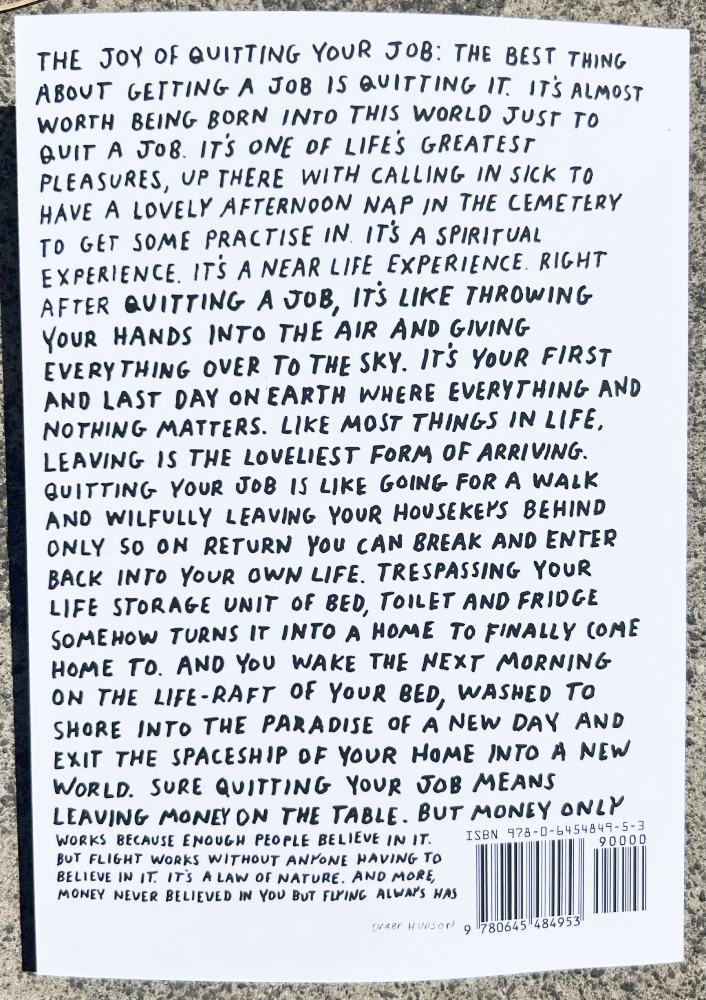 THE JOY OF QUITTING YOUR JOB: THE BEST THING
ABOUT GETTING A JOB IS QUITTING IT. IT'S ALMOST
WORTH BEING BORN INTO THIS WORLD JUST TO
QUIT A JOB. IT'S ONE OF LIFE'S GREATEST
PLEASURES, UP THERE WITH CALLING IN SICK TO
HAVE A LOVELY AFTERNOON NAP IN THE CEMETERY
TO GET SOME PRACTISE IN. IT'S A SPIRITUAL
EXPERIENCE. IT'S A NEAR LIFE EXPERIENCE. RIGHT
AFTER QUITTING A JOB, IT'S LIKE THROWING
YOUR HANDS INTO THE AIR AND GIVING
EVERYTHING OVER TO THE SKY. IT'S YOUR FIRST
AND LAST DAY ON EARTH WHERE EVERYTHING AND
NOTHING MATTERS. LIKE MOST THINGS IN LIFE,
LEAVING IS THE LOVELIEST FORM OF ARRIVING.
QUITTING YOUR JOB IS LIKE GOING FOR A WALK
AND WILFULLY LEAVING YOUR HOUSEKEYS BEHIND
ONLY SO ON RETURN YOU CAN BREAK AND ENTER
BACK INTO YOUR OWN LIFE. TRESPASSING YOUR
LIFE STORAGE UNIT OF BED, TOILET AND FRIDGE
SOMEHOW TURNS IT INTO A HOME TO FINALLY COME
HOME TO. AND YOU WAKE THE NEXT MORNING
ON THE LIFE-RAFT OF YOUR BED, WASHED TO
SHORE INTO THE PARADISE OF A NEW DAY AND
EXIT THE SPACESHIP OF YOUR HOME INTO A NEW
WORLD. SURE QUITTING YOUR JOB MEANS
LEAVING MONEY ON THE TABLE. BUT MONEY ONLY
WORKS BECAUSE ENOUGH PEOPLE BELIEVE IN IT.
BUT FLIGHT WORKS WITHOUT ANYONE HAVING TO
BELIEVE IN IT. IT'S A LAW OF NATURE. AND MORE,
MONEY NEVER BELIEVED IN YOU BUT FLYING ALWAYS HAS
ISBN 978-0-6454849-5-3
90000
9 780645 484953
HUDSON